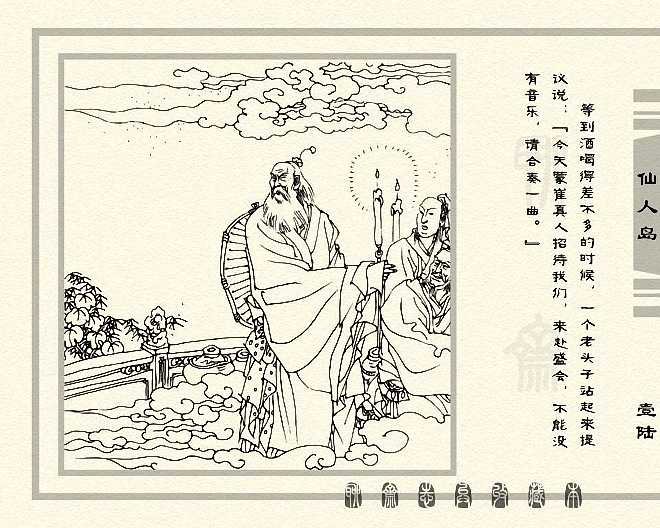 仙人岛
壹陆
等到酒喝得差不多的时候，一个老头子站起来提
议说：“今天蒙崔真人招待我们，来赴盛会，不能没
有音乐，请合奏一曲。”